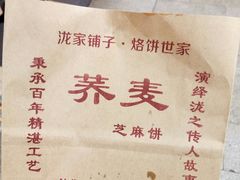 泷家铺子·烙饼世家
秉承百年精湛工艺
荞麦
芝麻饼
演绎泷之传人故事